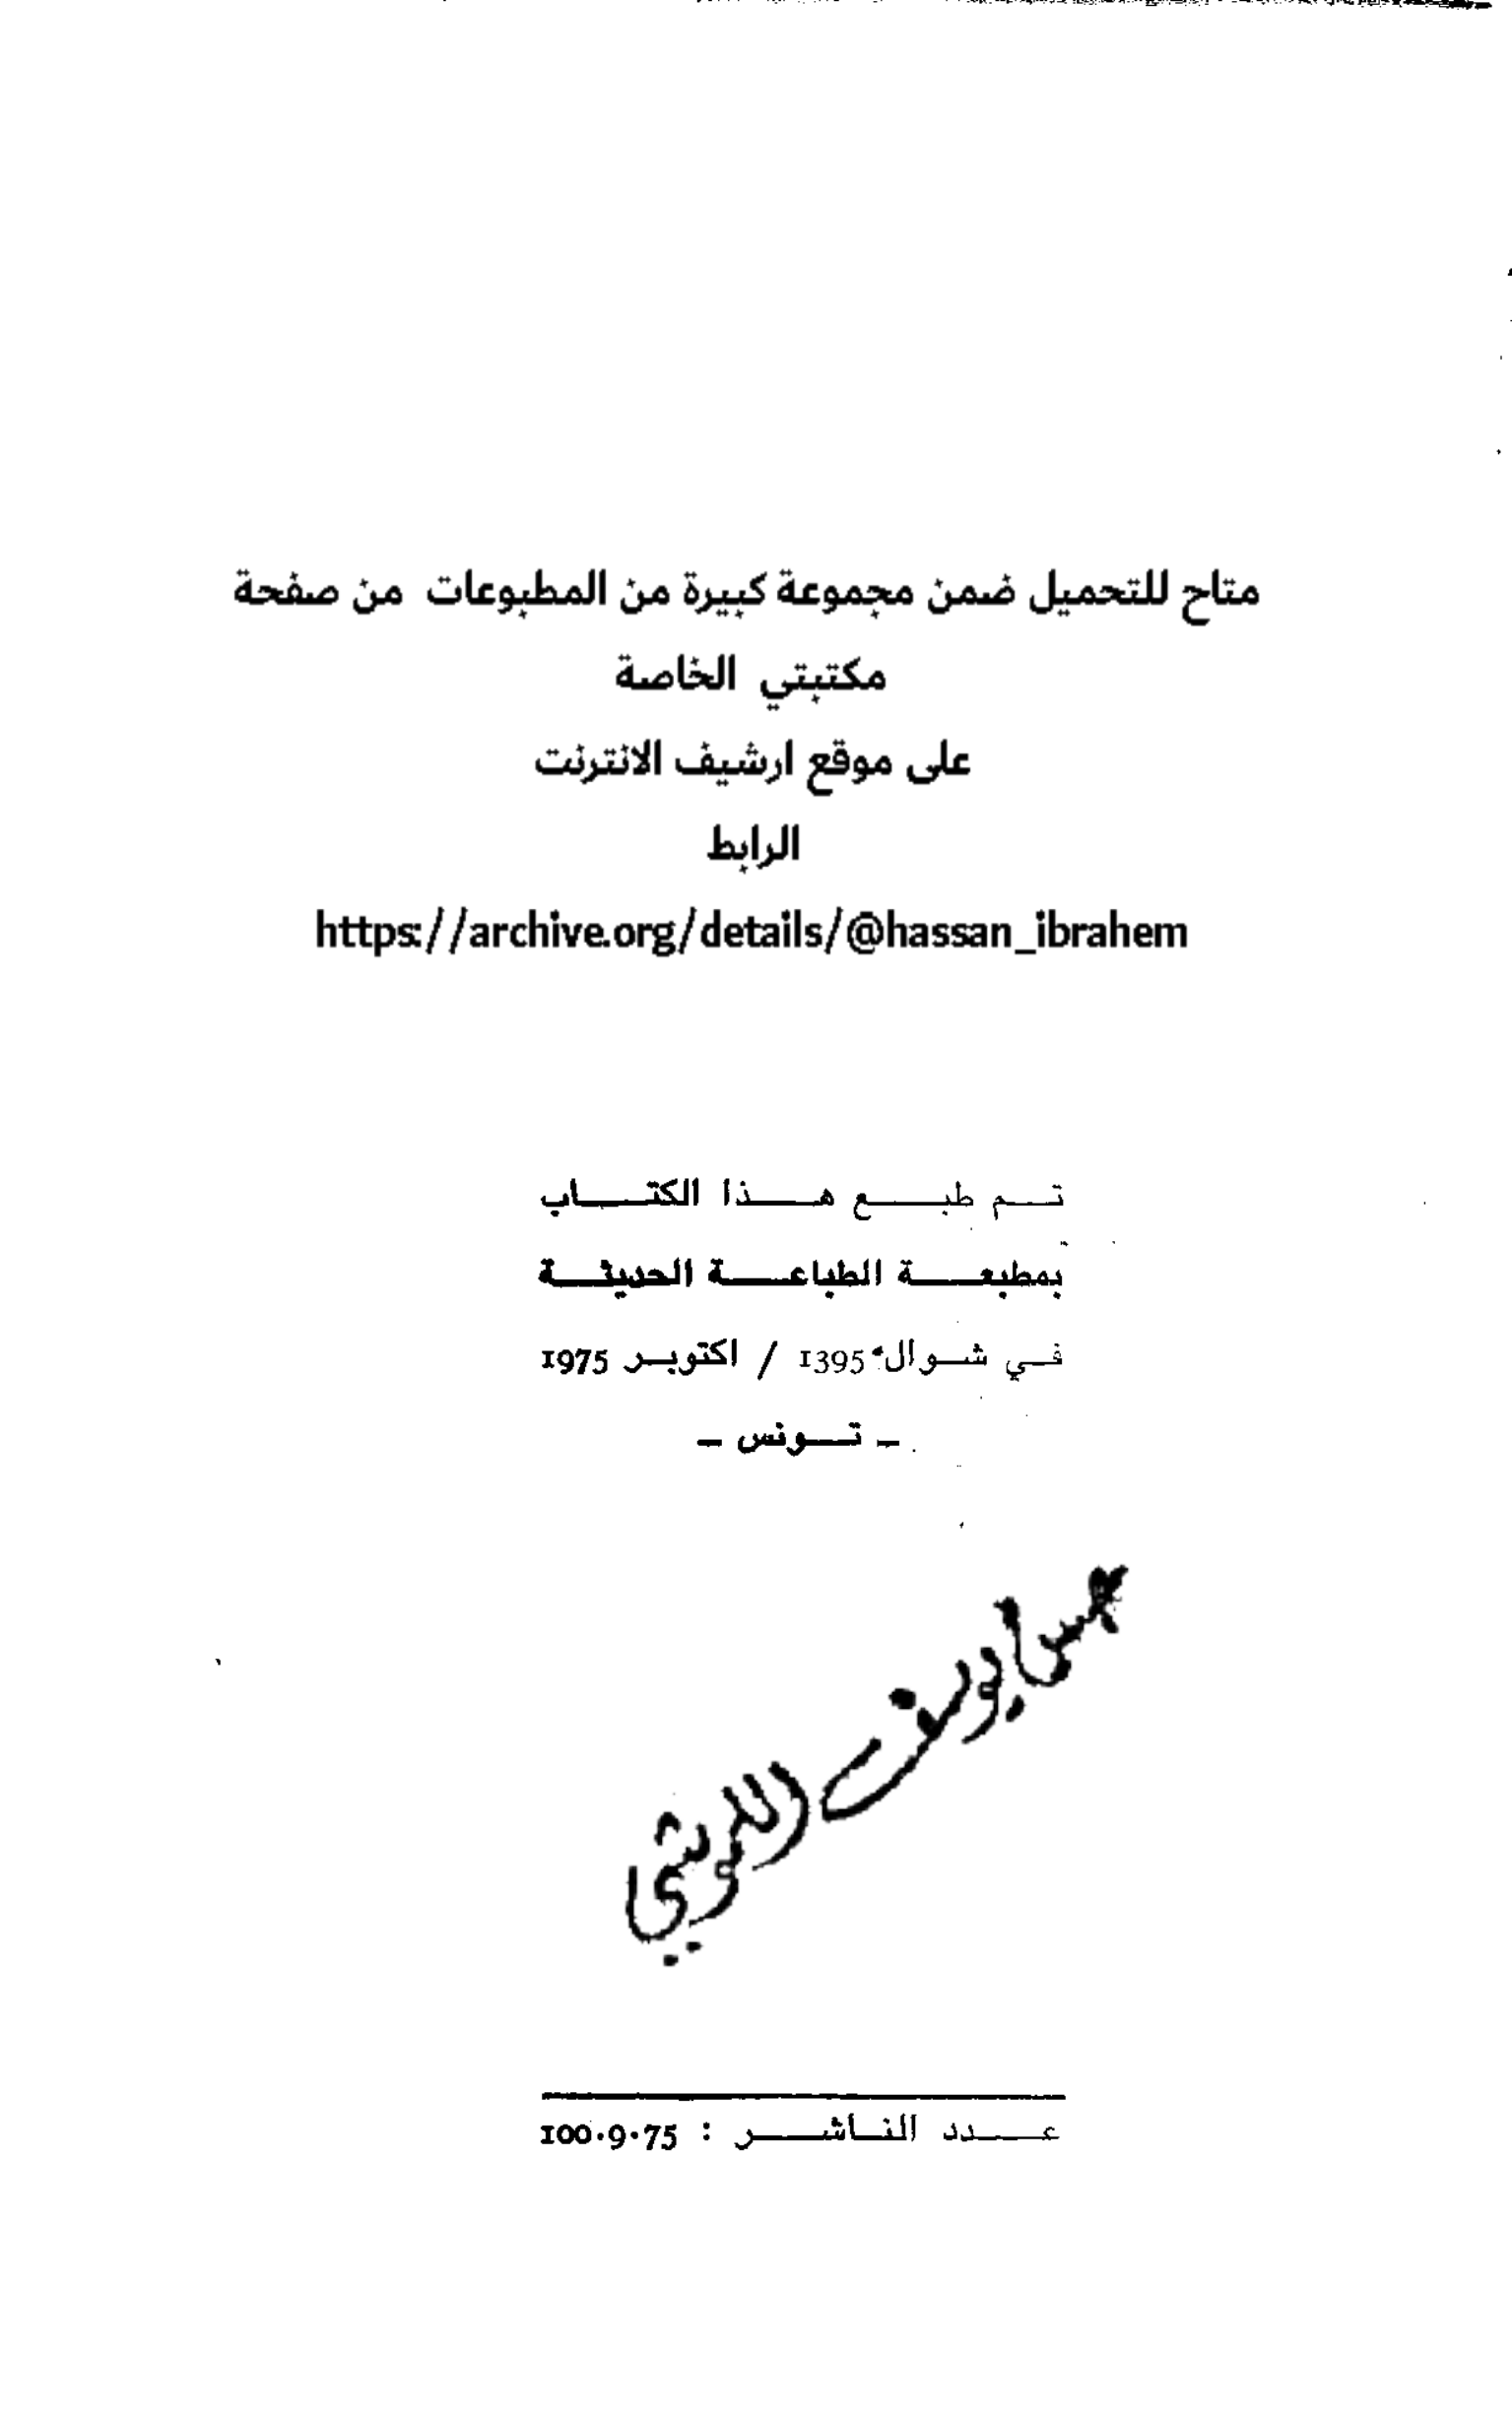 متاح للتحميل ضمن مجموعة كبيرة من المطبوعات من صفحة
مكتبتي الخاصة
على موقع ارشيف الانترنت
الرابط
https://archive.org/details/@hassan_ibrahem
تم طبع هذا الكتاب
بمطبعة الطباعة الحديثة
في شوال 1395 / اكتوبر 1975
- تونس -
يوسف
عدد الناشر : 100.9.75